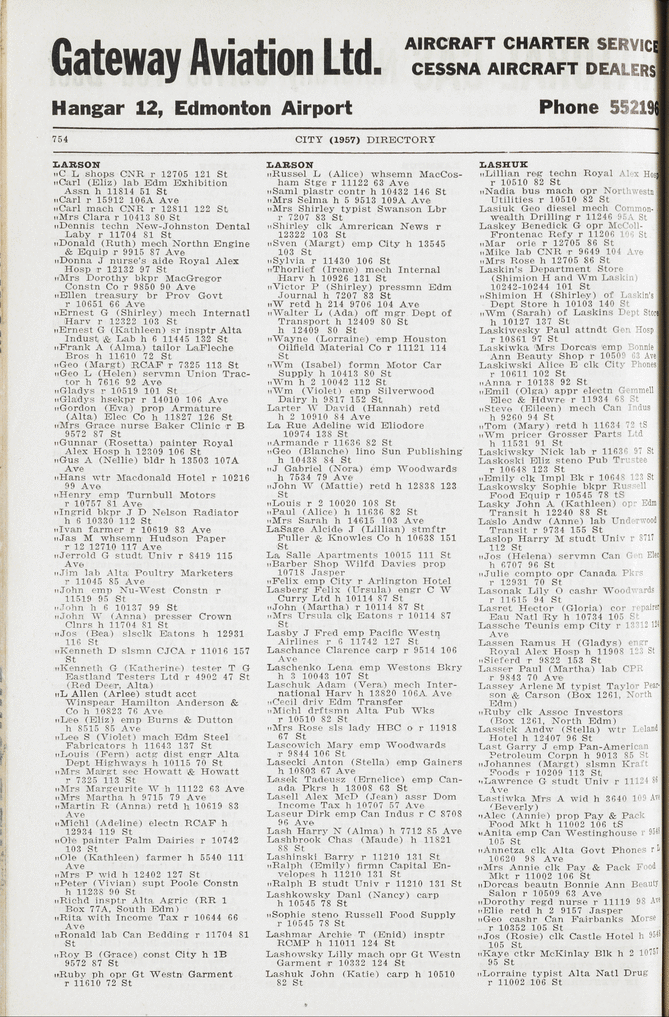 Gateway Aviation Ltd.
AIRCRAFT CHARTER SERVICE
CESSNA AIRCRAFT DEALERS
Hangar 12, Edmonton Airport
Phone 552196
754
CITY (1957) DIRECTORY
LARSON
"C L shops CNR r 12705 121 St
"Carl (Eliz) lab Edm Exhibition
Assn h 11814 51 St
"Carl r 15912 106A Ave
"Carl mach CNR r 12811 122 St
"Mrs Clara r 10413 80 St
"Dennis techn New-Johnston Dental
Laby r 11704 81 St
"Donald (Ruth) mech Northn Engine
& Equip r 9915 87 Ave
"Donna J nurse's aide Royal Alex
Hosp r 12132 97 St
"Mrs Dorothy bkpr MacGregor
Constn Co r 9850 90 Ave
"Ellen treasury br Prov Govt
r 10651 66 Ave
"Ernest G (Shirley) mech Internatl
Harv r 12322 103 St
"Ernest G (Kathleen) sr insptr Alta
Indust & Lab h 6 11445 132 St
"Frank A (Alma) tailor LaFleche
Bros h 11610 72 St
"Geo (Margt) RCAF r 7325 113 St
"Geo L (Helen) servmn Union Trac-
tor h 7616 92 Ave
"Gladys r 10519 101 St
"Gladys hsekpr r 14010 106 Ave
"Gordon (Eva) prop Armature
(Alta) Elec Co h 11827 126 St
"Mrs Grace nurse Baker Clinic r B
9572 87 St
"Gunnar (Rosetta) painter Royal
Alex Hosp h 12309 106 St
"Gus A (Nellie) bldr h 13503 107A
Ave
"Hans wtr Macdonald Hotel r 10216
99 Ave
"Henry emp Turnbull Motors
r 10757 81 Ave
"Ingrid bkpr J D Nelson Radiator
h 6 10330 112 St
"Ivan farmer r 10619 83 Ave
"Jas M whsemn Hudson Paper
r 12 12710 117 Ave
"Jerrold G studt Univ r 8419 115
Ave
"Jim lab Alta Poultry Marketers
r 11045 85 Ave
"John emp Nu-West Constn r
11519 95 St
"John h 6 10137 99 St
"John W (Anna) presser Crown
Clnrs h 11704 81 St
"Jos (Bea) slsclk Eatons h 12931
116 St
"Kenneth D slsmn CJCA r 11016 157
St
"Kenneth G (Katherine) tester T G
Eastland Testers Ltd r 4902 47 St
(Red Deer, Alta)
"L Allen (Arlee) studt acct
Winspear Hamilton Anderson &
Co h 10823 76 Ave
"Lee (Eliz) emp Burns & Dutton
h 8515 85 Ave
"Lee S (Violet) mach Edm Steel
Fabricators h 11643 137 St
"Louis (Fern) actg dist engr Alta
Dept Highways h 10115 70 St
"Mrs Margt sec Howatt & Howatt
r 7325 113 St
"Mrs Margeurite W h 11122 63 Ave
"Mrs Martha h 9715 79 Ave
"Martin R (Anna) retd h 10619 83
Ave
"Michl (Adeline) electn RCAF h
12934 119 St
"Ole painter Palm Dairies r 10742
103 St
"Ole (Kathleen) farmer h 5540 111
Ave
"Mrs P wid h 12402 127 St
"Peter (Vivian) supt Poole Constn
h 11238 90 St
"Richd insptr Alta Agric (RR 1
Box 77A, South Edm)
"Rita with Income Tax r 10644 66
Ave
"Ronald lab Can Bedding r 11704 81
St
"Roy B (Grace) const City h 1B
9572 87 St
"Ruby ph opr Gt Westn Garment
r 11610 72 St
LARSON
"Russel L (Alice) whsemn MacCos-
ham Stge r 11122 63 Ave
"Saml plastr contr h 10432 146 St
"Mrs Selma h 5 9513 109A Ave
"Mrs Shirley typist Swanson Lbr
r 7207 83 St
"Shirley clk Amrican News r
12322 103 St
"Sven (Margt) emp City h 13545
103 St
"Sylvia r 11430 106 St
"Thorlief (Irene) mech Internatl
Harv h 10926 131 St
"Victor P (Shirley) pressmn Edm
Journal h 7207 83 St
"W retd h 214 9706 104 Ave
"Walter L (Ada) off mgr Dept of
Transport h 12409 80 St
h 12409 80 St
"Wayne (Lorraine) emp Houston
Oilfield Material Co r 11121 114
St
"Wm (Isabel) formn Motor Car
Supply h 10413 80 St
"Wm h 2 10042 112 St
"Wm (Violet) emp Silverwood
Dairy h 9817 152 St
Larter W David (Hannah) retd
h 2 10910 84 Ave
La Rue Adeline wid Eliodore
10974 138 St
"Armande r 11636 82 St
"Geo (Blanche) lino Sun Publishing
h 10438 84 St
"J Gabriel (Nora) emp Woodwards
h 7534 79 Ave
"John W (Mattie) retd h 12838 123
St
"Louis r 2 10020 108 St
"Paul (Alice) h 11636 82 St
"Mrs Sarah h 14615 103 Ave
LaSage Alcide J (Lillian) stmftr
Fuller & Knowles Co h 10638 151
St
La Salle Apartments 10015 111 St
"Barber Shop Wilfd Davies prop
10718 Jasper
"Felix emp City r Arlington Hotel
Lasberg Felix (Ursula) engr C W
Curry Ltd h 10114 87 St
"John (Martha) r 10114 87 St
"Mrs Ursula clk Eatons r 10114 87
St
Lasby J Fred emp Pacific Westn
Airlines r 6 11742 127 St
Laschance Clarence carp r 9514 106
Ave
Laschenko Lena emp Westons Bkry
h 3 10043 107 St
Laschuk Adam (Vera) mech Inter-
national Harv h 13820 106A Ave
"Cecil driv Edm Transfer
"Michl drftsmn Alta Pub Wks
r 10510 82 St
"Mrs Rose sls lady HBC o r 11918
67 St
Lascowich Mary emp Woodwards
r 9844 106 St
Lasecki Anton (Stella) emp Gainers
h 10803 67 Ave
Lasek Tadeusz (Ernelice) emp Can-
ada Pkrs h 13008 63 St
Lasell Alex McD (Jean) assr Dom
Income Tax h 10707 57 Ave
Laseur Dirk emp Can Indus r C 8708
96 Ave
Lash Harry N (Alma) h 7712 85 Ave
Lashbrook Chas (Maude) h 11821
88 St
Lashinski Barry r 11210 131 St
"Ralph (Emily) firmn Capital En-
velopes h 11210 131 St
"Ralph B studt Univ r 11210 131 St
Lashkowsky Danl (Nancy) carp
h 10545 78 St
"Sophie steno Russell Food Supply
r 10545 78 St
Lashmar Archie T (Enid) insptr
RCMP h 11011 124 St
Lashowsky Lilly mach opr Gt Westn
Garment r 10332 124 St
Lashuk John (Katie) carp h 10510
82 St
LASHUK
"Lillian reg techn Royal Alex Hosp
r 10510 82 St
"Nadia bus mach opr Northwestn
Utilities r 10510 82 St
Lasiuk Geo diesel mech Common-
wealth Drilling r 11246 95A St
Laskey Benedick G opr McColl-
Frontenac Refy r 11206 106 St
"Mar orie r 12705 86 St
"Mike lab CNR r 9649 104 Ave
"Mrs Rose h 12705 86 St
Laskin's Department Store
(Shimion H and Wm Laskin)
10242-10244 101 St
"Shimion H (Shirley) of Laskin's
Dept Store h 10103 140 St
"Wm (Sarah) of Laskins Dept Store
h 10127 137 St
Laskiwesky Paul attndt Gen Hosp
r 10861 97 St
Laskiwka Mrs Dorcas emp Bonnie
Ann Beauty Shop r 10509 63 Ave
Laskiwski Alice E clk City Phones
r 10611 102 St
"Anna r 10138 92 St
"Emil (Olga) appr electn Gemmell
Elec & Hdwre r 11934 68 St
"Steve (Eileen) mech Can Indus
h 9260 94 St
"Tom (Mary) retd h 11634 72 tS
"Wm pricer Grosser Parts Ltd
h 11531 91 St
Laskiwsky Nick lab r 11636 97 St
Laskoski Eliz steno Pub Trustee
r 10648 123 St
"Emily clk Impl Bk r 10648 123 St
Laskowsky Sophie bkpr Russell
Food Equip r 10545 78 tS
Lasky John A (Kathleen) opr Edm
Transit h 12240 88 St
Laslo Andw (Anne) lab Underwood
Transit r 9734 155 St
Laslop Harry M studt Univ r 8717
112 St
"Jos (Helena) servmn Can Gen Elec
h 6707 96 St
"Julie compto opr Canada Pkrs
r 12931 70 St
Lasonak Lily O cashr Woodwards
r 11615 94 St
Lasret Hector (Gloria) cor repairer
Eau Natl Ry h 10734 105 St
Lassche Teunis emp City r 13312 124
Ave
Lassen Ramus H (Gladys) engr
Royal Alex Hosp h 11908 123 St
"Sieferd r 9822 153 St
Lasser Paul (Martha) lab CPR
r 9843 70 Ave
Lassey Arlene M typist Taylor Pear-
son & Carson (Box 1261, North
Edm)
"Ruby clk Assoc Investors
(Box 1261, North Edm)
Lassick Andw (Stella) wtr Leland
Hotel h 12407 96 St
Last Garry J emp Pan-American
Petroleum Corpn h 9013 85 St
"Johannes (Margt) slsmn Kraft
Foods r 10209 113 St
"Lawrence G studt Univ r 11124
Ave
Lastiwka Mrs A wid h 3640 109 Ave
(Beverly)
"Alec (Annie) prop Pay & Pack
Food Mkt h 11002 106 tS
"Anita emp Can Westinghouse r
105 St
"Annetza clk Alta Govt Phones r
10620 98 Ave
"Mrs Annie clk Pay & Pack Food
Mkt r 11002 106 St
"Dorcas beautn Bonnie Ann Beauty
Salon r 10509 63 Ave
"Dorothy regd nurse r 11119 98 Ave
"Elie retd h 2 9157 Jasper
"Geo cashr Can Fairbanks Morse
r 10352 105 St
"Jos (Rosie) clk Castle Hotel h
105 St
"Kaye ctkr McKinlay Blk h 2 10757
95 St
"Lorraine typist Alta Natl Drug
r 11002 106 St